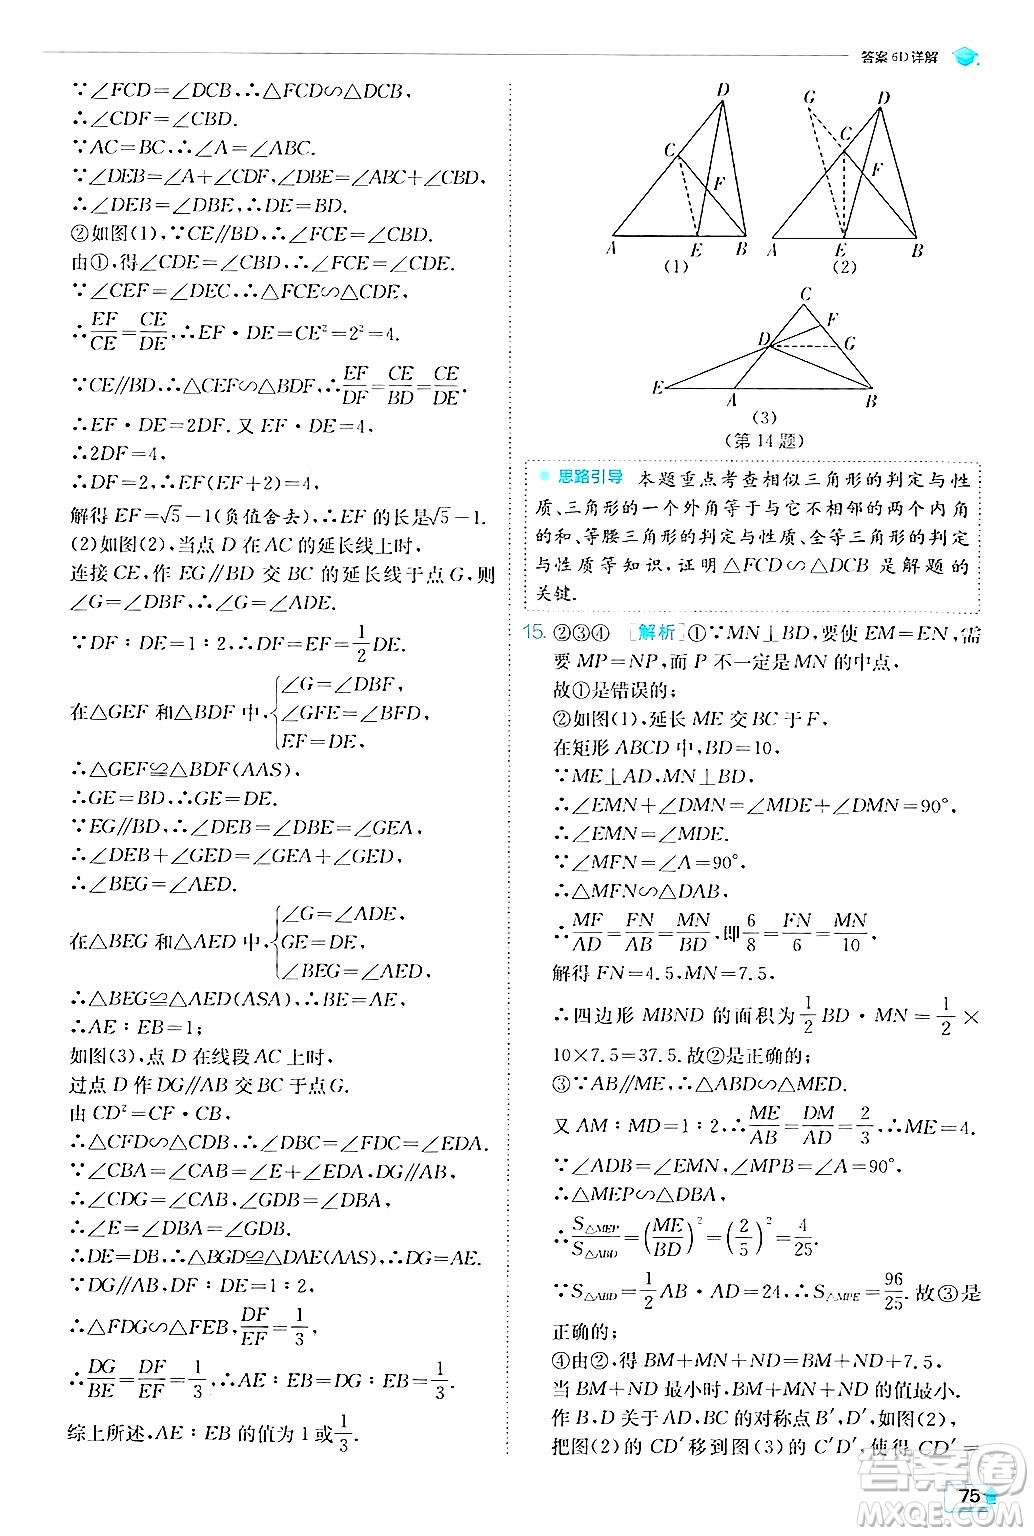 答案6D详解
∵∠FCD=∠DCB,∴△FCD∽△DCB,
∴∠CDF=∠CBD.
∵AC=BC,∴∠A=∠ABC.
∵∠DEB=∠A+∠CDF,∠DBE=∠ABC+∠CBD,
∴∠DEB=∠DBE,∴DE=BD.
②如图(1),∵CE∥BD,∴∠FCE=∠CBD.
由①,得∠CDE=∠CBD,∴∠FCE=∠CDE.
∵∠CEF=∠DEC,∴△FCE∽△CDE,
∴EF/CE=CE/DE,∴EF·DE=CE²=2²=4.
∵CE∥BD,∴△CEF∽△BDF,∴EF/DF=CE/BD=CE/DE,
∴EF·DE=2DF.又EF·DE=4,
∴2DF=4,
∴DF=2,∴EF(EF+2)=4,
解得EF=√5-1(负值舍去),∴EF的长是√5-1.
(2)如图(2),当点D在AC的延长线上时,
连接CE,作EG∥BD交BC的延长线于点G,则
∠G=∠DBF,∴∠G=∠ADE.
∵DF:DE=1:2,∴DF=EF=1/2DE.
在△GEF和△BDF中,{∠G=∠DBF,
∠GFE=∠BFD,
EF=DE,
∴△GEF≌△BDF(AAS),
∴GE=BD,∴GE=DE.
∵EG∥BD,∴∠DEB=∠DBE=∠GEA,
∴∠DEB+∠GED=∠GEA+∠GED,
∴∠BEG=∠AED.
在△BEG和△AED中,{∠G=∠ADE,
GE=DE,
∠BEG=∠AED,
∴△BEG≌△AED(ASA),∴BE=AE,
∴AE:EB=1;
如图(3),点D在线段AC上时,
过点D作DG∥AB交BC于点G.
由CD²=CF·CB,
∴△CFD∽△CDB,∴∠DBC=∠FDC=∠EDA.
∵∠CBA=∠CAB=∠E+∠EDA,DG∥AB,
∴∠CDG=∠CAB,∠GDB=∠DBA,
∴∠E=∠DBA=∠GDB.
∴DE=DB,∴△BGD≌△EAD(AAS),∴DG=AE.
∵DG∥AB,DF:DE=1:2,
∴△FDG∽△FEB,DF/EF=1/3,
∴DG/BE=DF/EF=1/3,∴AE:EB=DG:EB=1/3.
综上所述,AE:EB的值为1或1/3.
D
C
F
A
E
B
(1)
G
D
C
F
A
E
B
(2)
C
F
D
G
E
A
B
(3)
(第14题)
思路引导 本题重点考查相似三角形的判定与性
质、三角形的一个外角等于与它不相邻的两个内角
的和、等腰三角形的判定与性质、全等三角形的判定
与性质等知识,证明△FCD∽△DCB是解题的
关键.
15.②③④ [解析]①∵MN⊥BD,要使EM=EN,需
要MP=NP,而P不一定是MN的中点,
故①是错误的;
②如图(1),延长ME交BC于F,
在矩形ABCD中,BD=10,
∵ME⊥AD,MN⊥BD,
∴∠EMN+∠DMN=∠MDE+∠DMN=90°,
∴∠EMN=∠MDE.
∵∠MFN=∠A=90°,
∴△MFN∽△DAB,
∴MF/AD=FN/AB=MN/BD,即6/8=FN/6=MN/10,
解得FN=4.5,MN=7.5,
∴四边形MBND的面积为1/2BD·MN=1/2×
10×7.5=37.5.故②是正确的;
③∵AB∥ME,∴△ABD∽△MED.
又AM:MD=1:2,∴ME/AB=DM/AD=2/3,∴ME=4.
∵∠ADB=∠EMN,∠MPB=∠A=90°,
∴△MEP∽△DBA,
∴S△MEP/S△ABD=(ME/BD)²=(2/5)²=4/25.
∵S△ABD=1/2AB·AD=24,∴S△MPE=96/25.故③是
正确的;
④由②,得BM+MN+ND=BM+ND+7.5,
当BM+ND最小时,BM+MN+ND的值最小.
作B、D关于AD、BC的对称点B′、D′,如图(2),
把图(2)的CD′移到图(3)的C′D′,使得CD′=
75
答案圈
MXQE.COM